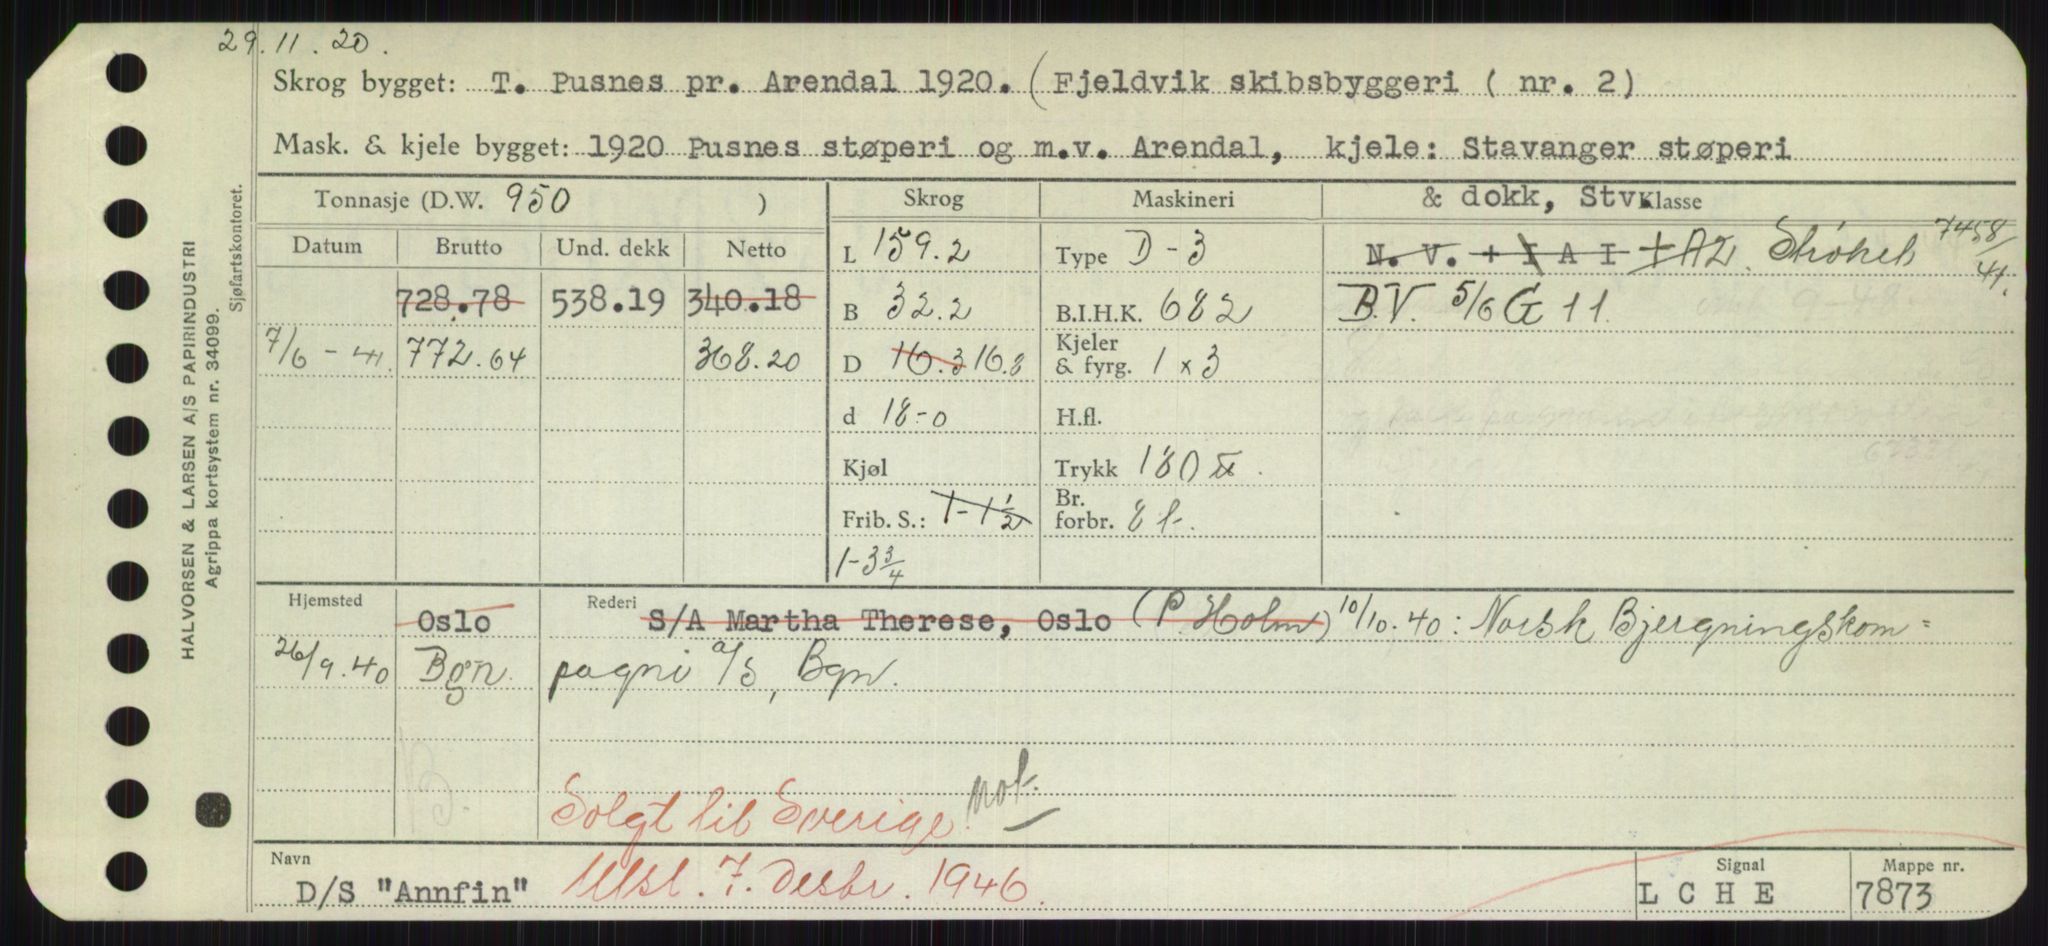 29.11.20.
Skrog bygget: T. Pusnes pr. Arendal 1920. (Fjeldvik skibsbyggeri ( nr. 2)
Mask. & kjele bygget: 1920 Pusnes støperi og m.v. Arendal, kjele: Stavanger støperi
& dokk, Stv.
Tonnasje (D.W. 950 )
Skrog
Maskineri
Klasse
Datum Brutto Und. dekk Netto
728.78 538.19 340.18
7/6 - 41. 772.64 368.20
L 159.2
B 32.2
D 16.3 16.8
d 18-0
Kjøl
Frib. S.: 1-1 1/2
1-3 3/4
Type D-3
B.I.H.K. 682
Kjeler
& fyrg. 1 x 3
H.fl.
Trykk 180
Br.
forbr. 8 t.
N. V. + I A I + A2. Strøket 7458/41.
B.V. 5/6 G 11.
Hjemsted
Rederi
Oslo S/A Martha Therese, Oslo (P. Holm) 10/10.40: Norsk Bjergningskom=
26/9.40 Bgn. pagni a/s, Bgn.
Solgt til Sverige. not.
Navn
D/S "Annfin" Utsl. 7. desbr. 1946.
Signal
L C H E
Mappe nr.
7873
HALVORSEN & LARSEN A/S PAPIRINDUSTRI
Agrippa kortsystem nr. 34099.
Sjøfartskontoret.